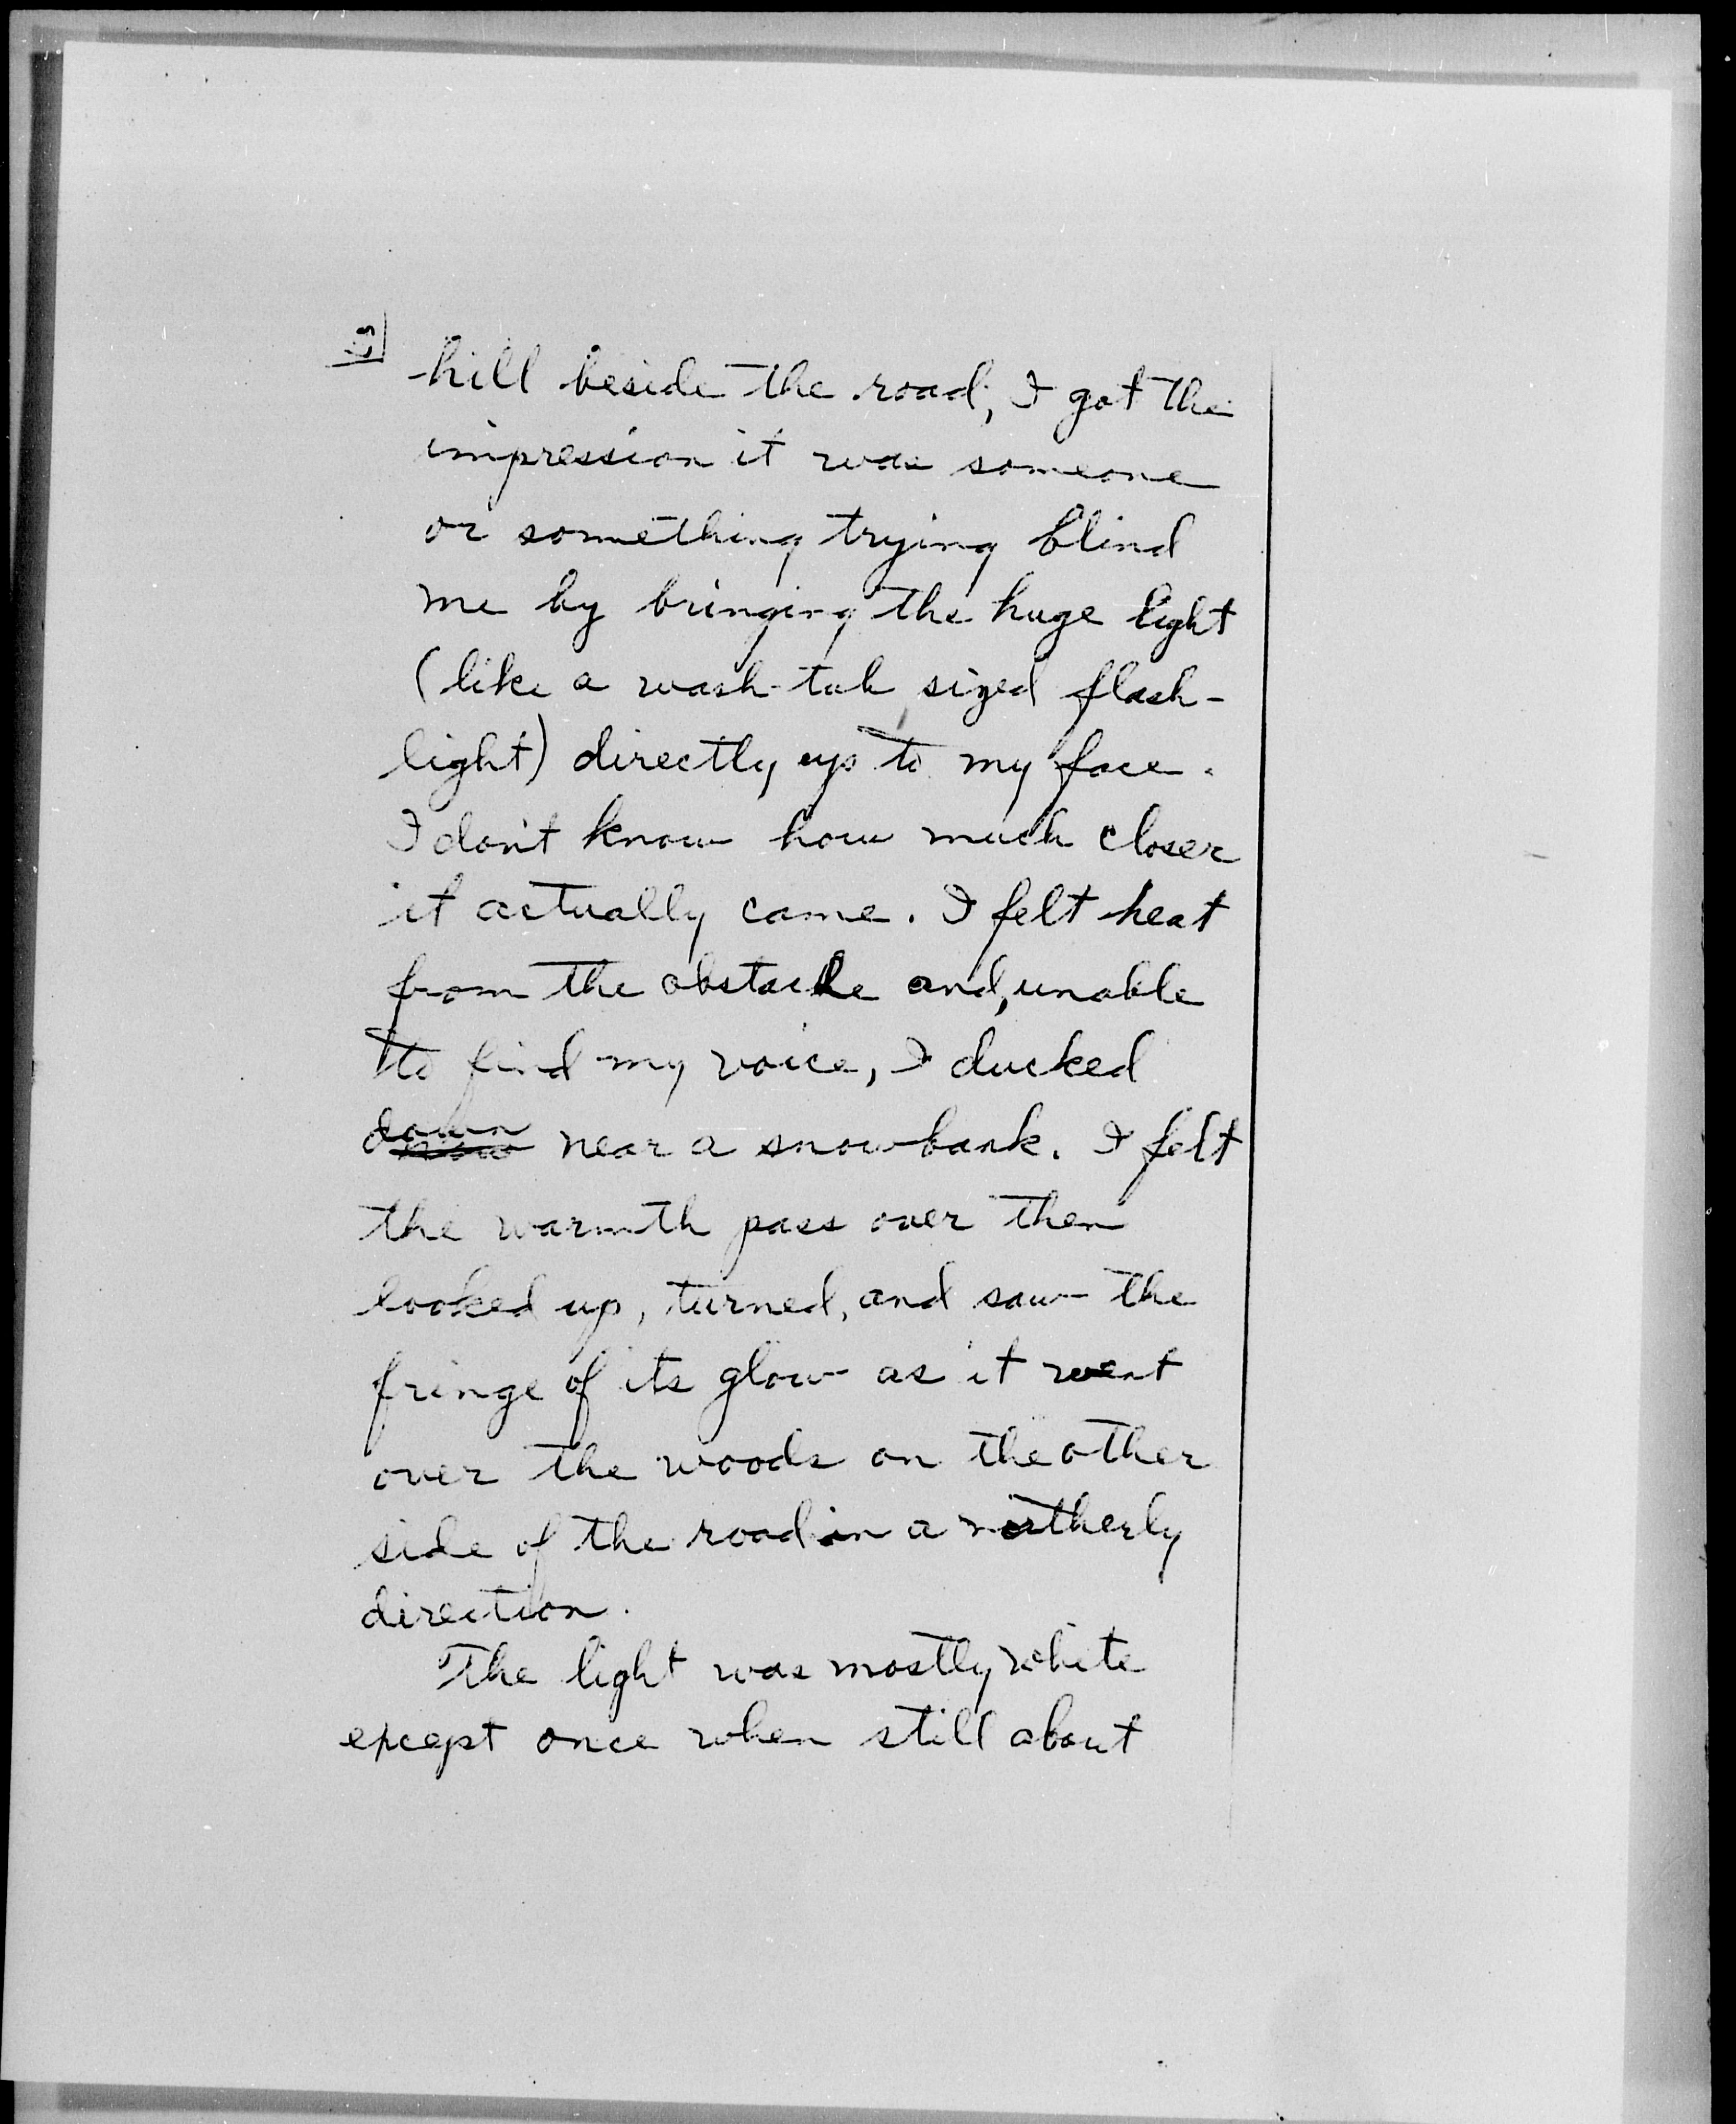 hill beside the road, I got the
impression it was someone
or something trying blind
me by bringing the huge light
(like a wash-tub sized flash-
light) directly up to my face.
I don't know how much closer
it actually came. I felt heat
from the obstacle and, unable
to find my voice, I ducked
down near a snowbank. I felt
the warmth pass over then
looked up, turned, and saw the
fringe of its glow as it went
over the woods on the other
side of the road in a northerly
direction.
The light was mostly white
except once when still about